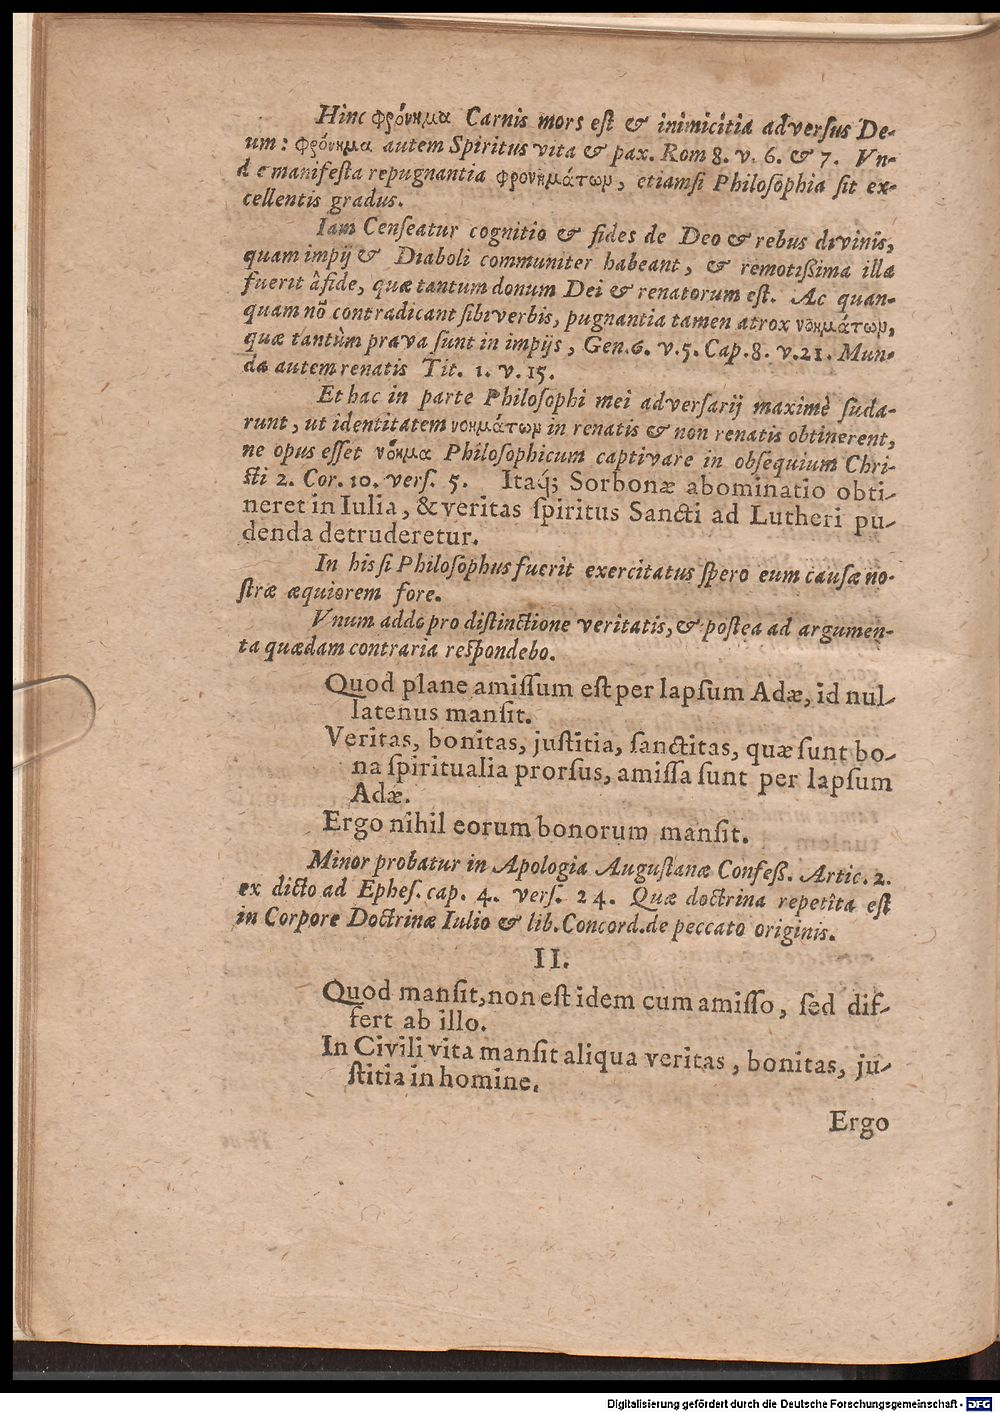 Hinc φρόνημα Carnis mors eſt & inimicitia adverſus De-
um: φρόνημα autem Spiritus vita & pax. Rom 8. v. 6. & 7. Vn-
de manifeſta repugnantia φρονημάτων, etiamſi Philoſophia ſit ex-
cellentis gradus.
Iam Cenſeatur cognitio & fides de Deo & rebus divinis,
quam impij & Diaboli communiter habeant, & remotißima illa
fuerit â fide, quæ tantum donum Dei & renatorum eſt. Ac quan-
quam nõ contradicant ſibi verbis, pugnantia tamen atrox νοημάτων,
quæ tantùm prava ſunt in impijs, Gen. 6. v. 5. Cap. 8. v. 21. Mun-
da autem renatis Tit. 1. v. 15.
Et hac in parte Philoſophi mei adverſarij maximè ſuda-
runt, ut identitatem νοημάτων in renatis & non renatis obtinerent,
ne opus eſſet νόημα Philoſophicum captivare in obſequium Chri-
ſti 2. Cor. 10. verſ. 5. Itaq́; Sorbonæ abominatio obti-
neret in Iulia, & veritas ſpiritus Sancti ad Lutheri pu-
denda detruderetur.
In his ſi Philoſophus fuerit exercitatus ſpero eum cauſæ no-
ſtræ æquiorem fore.
Vnum addo pro diſtinctione veritatis, & poſtea ad argumen-
ta quædam contraria reſpondebo.
Quod plane amiſſum eſt per lapſum Adæ, id nul-
latenus manſit.
Veritas, bonitas, juſtitia, ſanctitas, quæ ſunt bo-
na ſpiritualia prorſus, amiſſa ſunt per lapſum
Adæ.
Ergo nihil eorum bonorum manſit.
Minor probatur in Apologia Auguſtanæ Confeß. Artic. 2.
ex dicto ad Epheſ. cap. 4. verſ. 24. Quæ doctrina repetita eſt
in Corpore Doctrinæ Iulio & lib. Concord. de peccato originis.
II.
Quod manſit, non eſt idem cum amiſſo, ſed dif-
fert ab illo.
In Civili vita manſit aliqua veritas, bonitas, ju-
ſtitia in homine.
Ergo
Digitalisierung gefördert durch die Deutsche Forschungsgemeinschaft - DFG